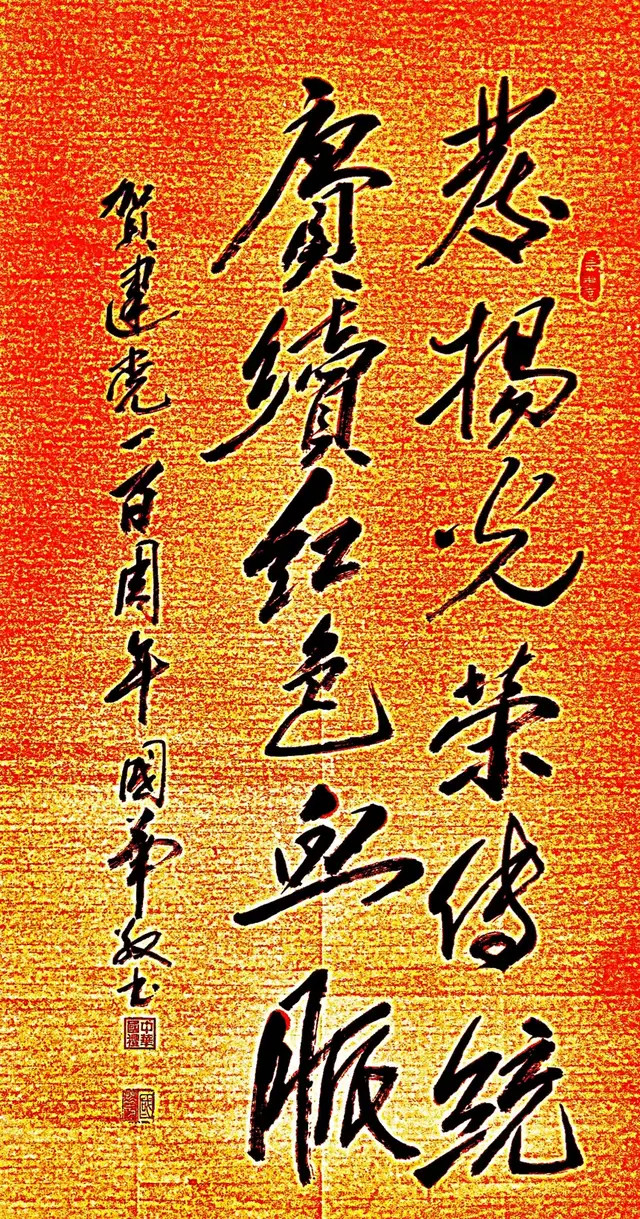 發揚光榮傳統
賡續紅色血脈
賀建党一百周年國華敬书